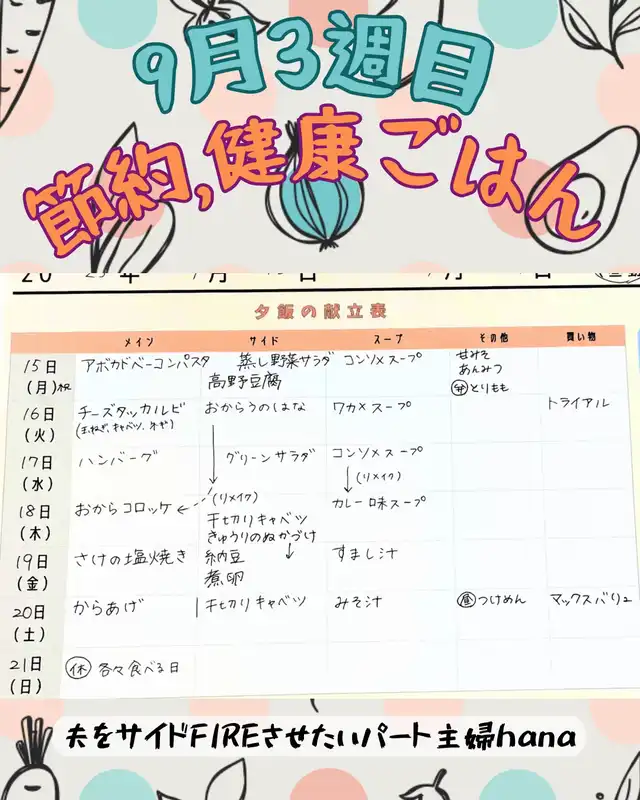 9月3週目
節約,健康ごはん
夕飯の献立表
メイン サイド スープ その他 買い物
15日(月)祝 アボカドベーコンパスタ 蒸し野菜サラダ 高野豆腐 コンソメスープ 甘みそ あんみつ 弁とりもも
16日(火) チーズタッカルビ おからうのはな ワカメスープ トライアル
17日(水) ハンバーグ グリーンサラダ コンソメスープ (リメイク)
18日(木) おからコロッケ (リメイク) 千切りキャベツ きゅうりのぬかづけ カレー味スープ
19日(金) さけの塩焼き 納豆 煮卵 すまし汁
20日(土) からあげ 千切りキャベツ みそ汁 昼つけめん マックスバリュ
21日(日) 休 各々食べる日
夫をサイドFIREさせたいパート主婦hana